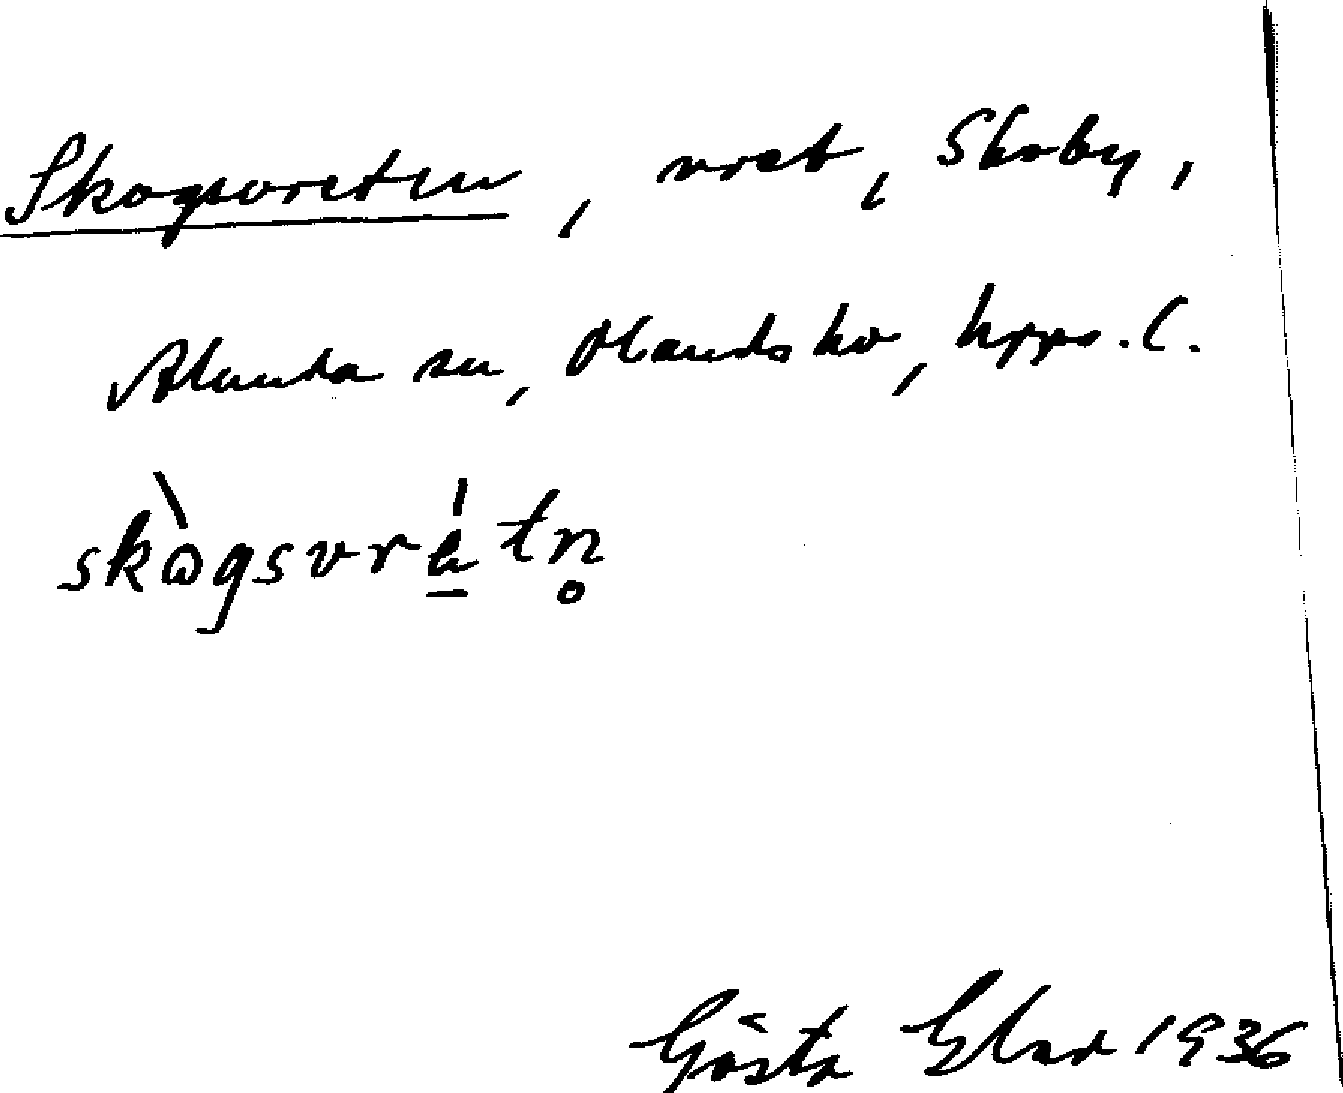 Skogsvreten, vret, Skoby,
Alunda sn, Olands hd, Upps. l.
skògsvrétn̥
Gösta Elsd 1936